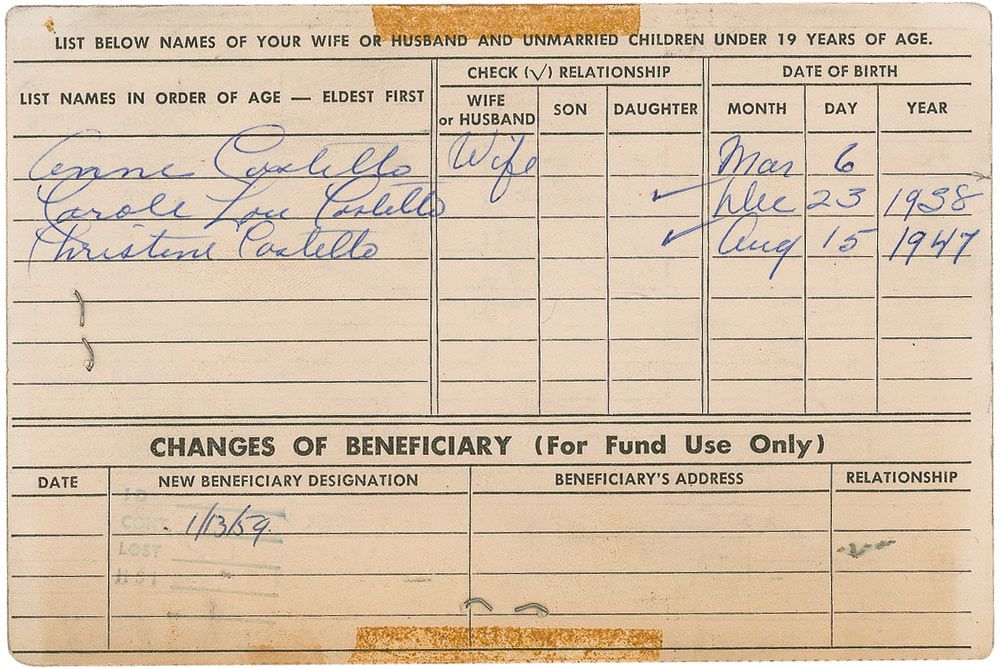 LIST BELOW NAMES OF YOUR WIFE OR HUSBAND AND UNMARRIED CHILDREN UNDER 19 YEARS OF AGE.
LIST NAMES IN ORDER OF AGE — ELDEST FIRST
CHECK (√) RELATIONSHIP
DATE OF BIRTH
WIFE or HUSBAND SON DAUGHTER MONTH DAY YEAR
Anne Costello Wife Mar 6
Carole Lou Costello ✓ Dec 23 1938
Christine Costello ✓ Aug 15 1947
CHANGES OF BENEFICIARY (For Fund Use Only)
DATE NEW BENEFICIARY DESIGNATION BENEFICIARY'S ADDRESS RELATIONSHIP
1/13/59.
LOST